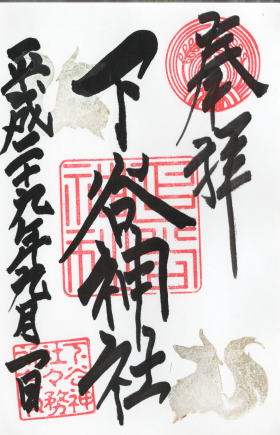 奉拝
下谷神社
平成二十九年九月一日
下谷神
社々務